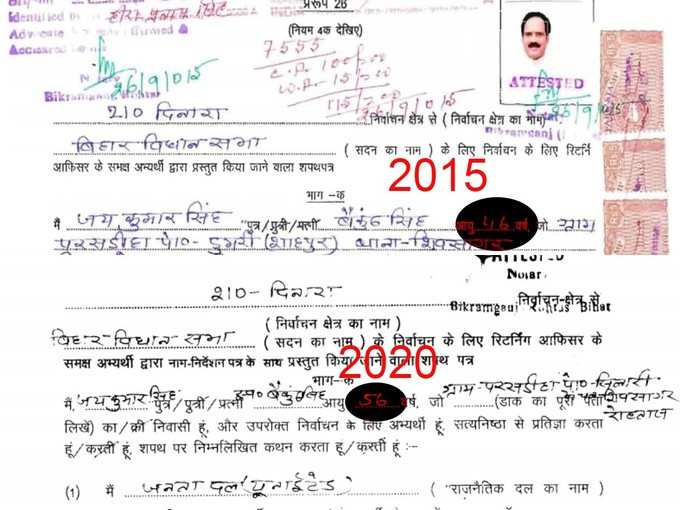 प्ररूप 26
Identified by
(नियम 4क देखिए)
7555
ATTESTED
26/9/015
Bikramganj
210 दिनारा
निर्वाचन क्षेत्र से ( निर्वाचन क्षेत्र का नाम)
बिहार विधान सभा ( सदन का नाम ) के लिए निर्वाचन के लिए रिटर्निं
आफिसर के समक्ष अभ्यर्थी द्वारा प्रस्तुत किया जाने वाला शपथपत्र
भाग -क
2015
मैं जय कुमार सिंह पुत्र/पुत्री/पत्नी बैकुंठ सिंह आयु 46 वर्ष, जो ग्राम
परसडीहा पो०- डुमरी (शाहपुर) थाना-शिवसागर
ATTESTED
210- दिनारा
निर्वाचन-क्षेत्र से
Bikramganj Rohtas Bihar
( निर्पाचन क्षेत्र का नाम )
बिहार विधान सभा ( सदन का नाम ) के निर्वाचन के लिए रिटर्निंग आफिसर के
समक्ष अभ्यर्थी द्वारा नाम-निर्देशन पत्र के साथ प्रस्तुत किया जाने वाला शपथ पत्र
2020
भाग-क
मैं, जय कुमार सिंह पुत्र/पुत्री/पत्नी स्व० बैकुंठ सिंह आयु 56 वर्ष, जो ग्राम-परसडीहा पो०- (डाक का पूरा पता शिवसागर रोहतास
लिखें) का/की निवासी हूं, और उपरोक्त निर्वाचन के लिए अभ्यर्थी हूं, सत्यनिष्ठा से प्रतिज्ञा करता
हूं/करती हूं, शपथ पर निम्नलिखित कथन करता हूं/करती हूं :–
(1) मैं जनता दल (यूनाईटेड) ( "राजनैतिक दल का नाम )